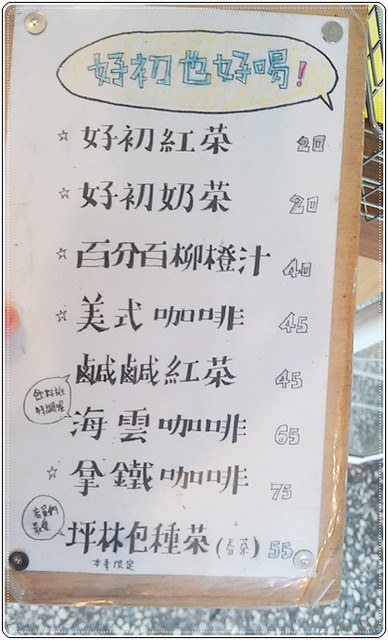 好初也好喝!
☆ 好初紅茶 20
☆ 好初奶茶 20
☆ 百分百柳橙汁 40
☆ 美式咖啡 45
鹹鹹紅茶 45
飲料社
特調喔
海雲咖啡 65
☆ 拿鐵咖啡 75
坪林包種茶(春茶) 55
本季限定